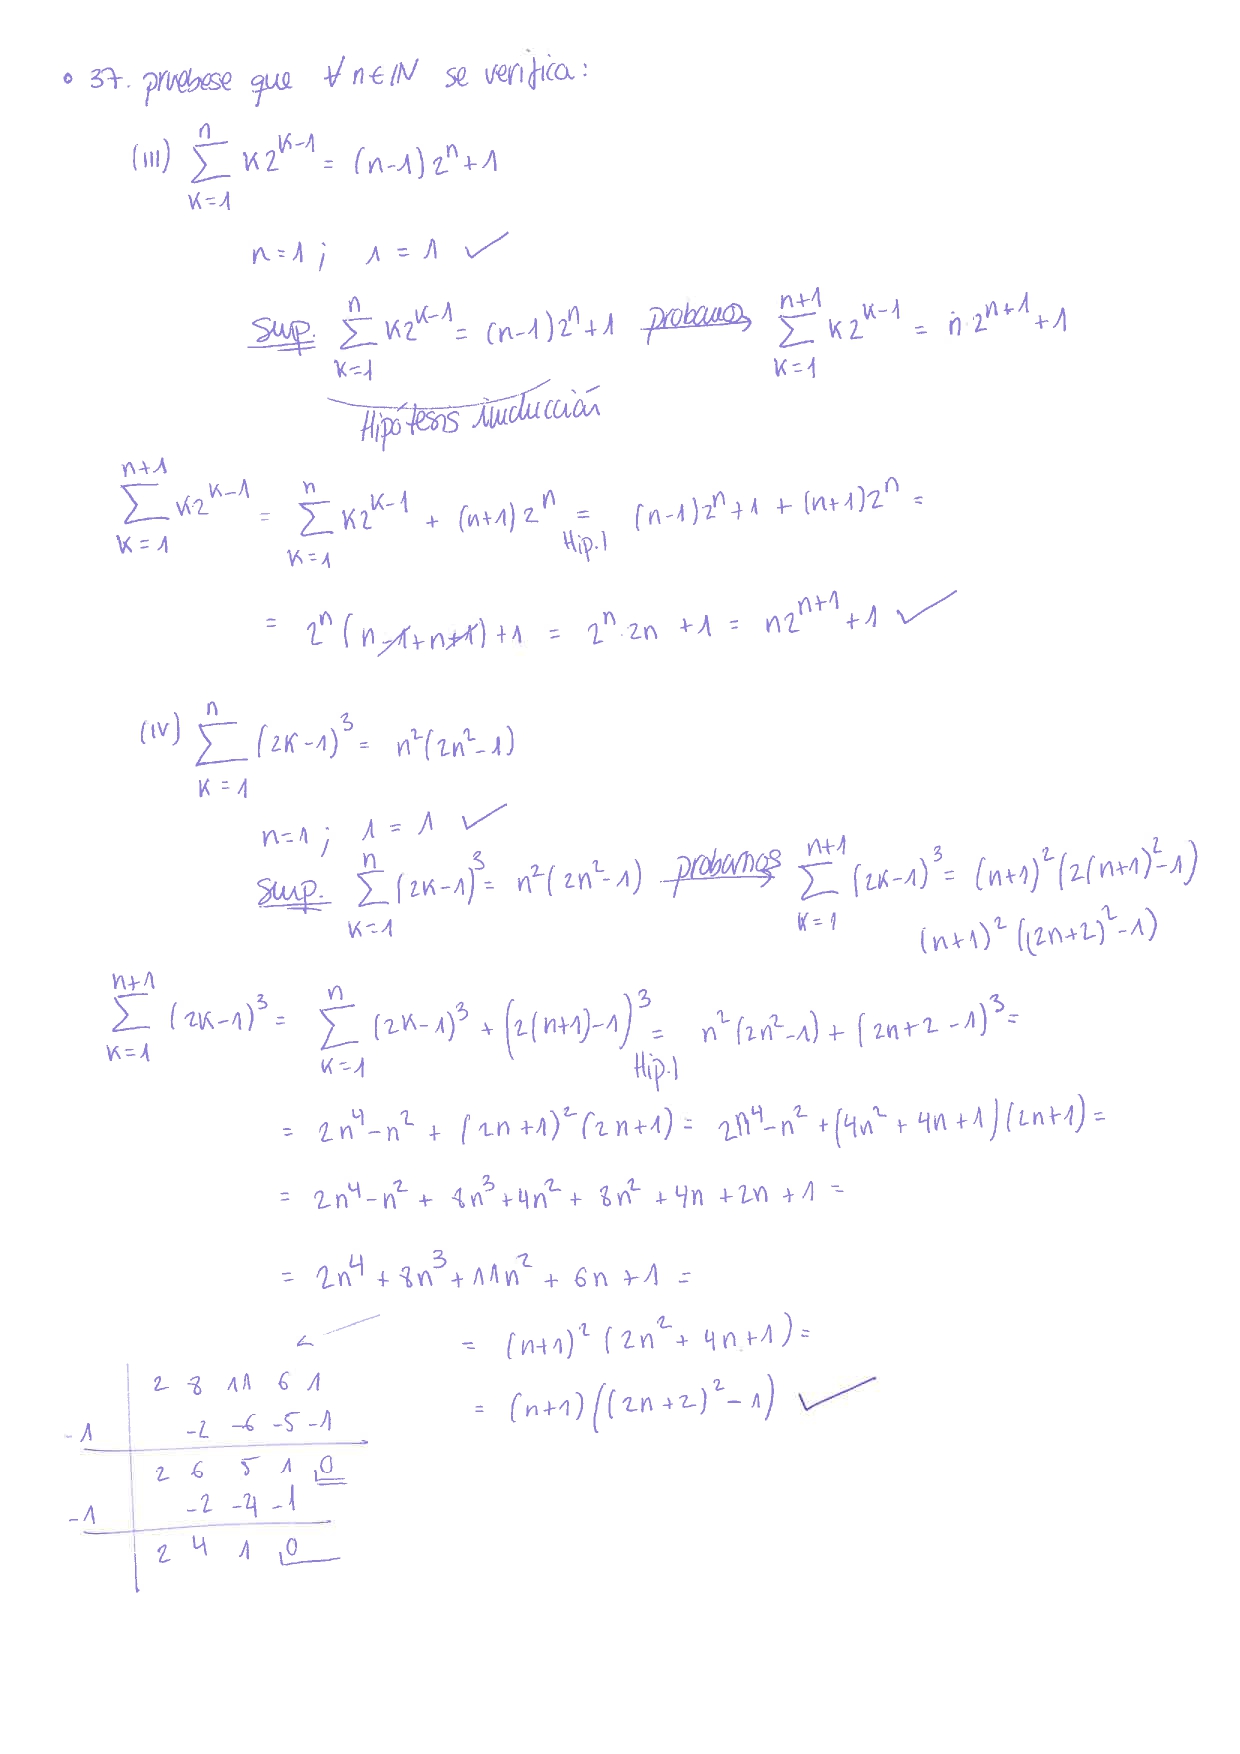 • 37. pruebese que ∀ n ∈ ℕ se verifica:
(III) ∑_{K=1}^{n} K2^{K-1} = (n-1)2^n + 1
n=1 ; 1 = 1 ✓
Sup. ∑_{K=1}^{n} K2^{K-1} = (n-1)2^n + 1 probamos ∑_{K=1}^{n+1} K2^{K-1} = n·2^{n+1} + 1
Hipótesis inducción
∑_{K=1}^{n+1} K·2^{K-1} = ∑_{K=1}^{n} K2^{K-1} + (n+1)2^n = (n-1)2^n + 1 + (n+1)2^n =
Hip.I
= 2^n (n-1+n+1) + 1 = 2^n·2n + 1 = n2^{n+1} + 1 ✓
(IV) ∑_{K=1}^{n} (2K-1)^3 = n^2(2n^2-1)
n=1 ; 1 = 1 ✓
Sup. ∑_{K=1}^{n} (2K-1)^3 = n^2(2n^2-1) probamos ∑_{K=1}^{n+1} (2K-1)^3 = (n+1)^2(2(n+1)^2-1)
(n+1)^2((2n+2)^2-1)
∑_{K=1}^{n+1} (2K-1)^3 = ∑_{K=1}^{n} (2K-1)^3 + (2(n+1)-1)^3 = n^2(2n^2-1) + (2n+2-1)^3 =
Hip.I
= 2n^4 - n^2 + (2n+1)^2(2n+1) = 2n^4 - n^2 + (4n^2 + 4n + 1)(2n+1) =
= 2n^4 - n^2 + 8n^3 + 4n^2 + 8n^2 + 4n + 2n + 1 =
= 2n^4 + 8n^3 + 11n^2 + 6n + 1 =
= (n+1)^2 (2n^2 + 4n + 1) =
= (n+1)((2n+2)^2 - 1) ✓
2 8 11 6 1
-1 -2 -6 -5 -1
2 6 5 1 0
-1 -2 -4 -1
2 4 1 0